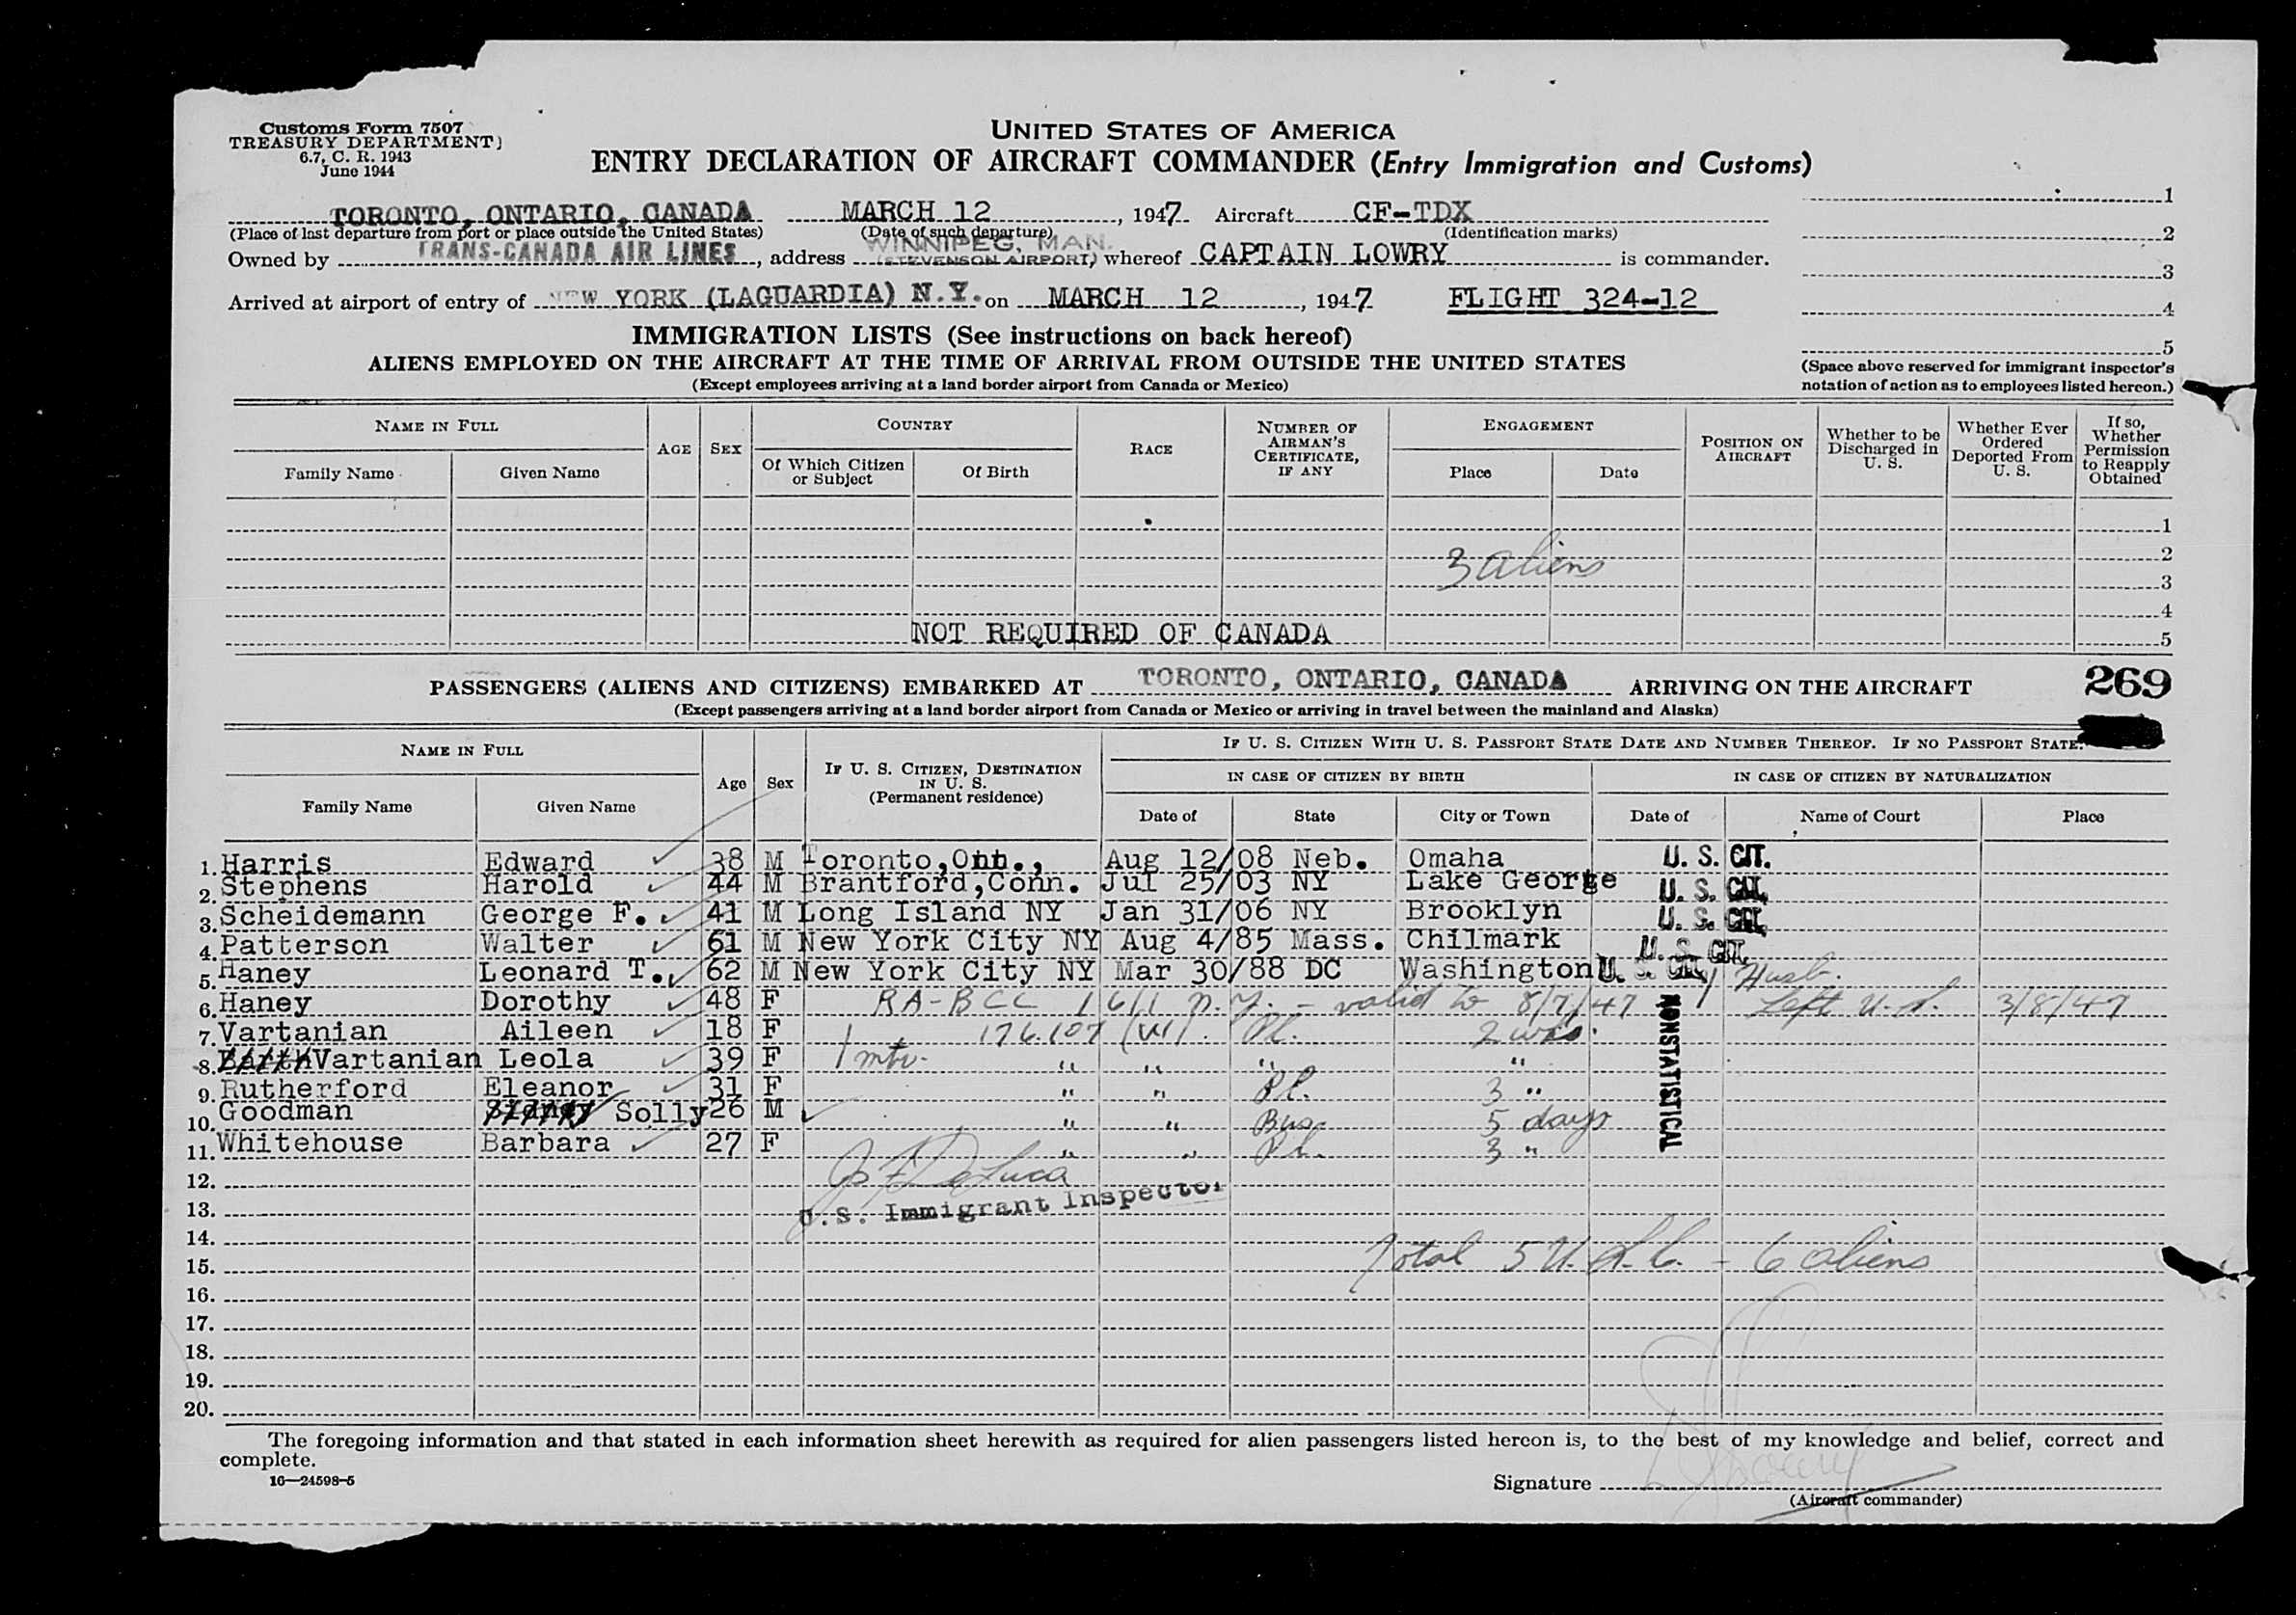 Customs Form 7507
TREASURY DEPARTMENT
6.7, C. R. 1943
June 1944
UNITED STATES OF AMERICA
ENTRY DECLARATION OF AIRCRAFT COMMANDER (Entry Immigration and Customs)
TORONTO, ONTARIO, CANADA MARCH 12, 1947 Aircraft CF-TDX 1
(Place of last departure from port or place outside the United States) (Date of such departure) (Identification marks) 2
WINNIPEG, MAN.
Owned by TRANS-CANADA AIR LINES, address (STEVENSON AIRPORT) whereof CAPTAIN LOWRY is commander. 3
Arrived at airport of entry of NEW YORK (LAGUARDIA) N.Y. on MARCH 12, 1947 FLIGHT 324-12 4
IMMIGRATION LISTS (See instructions on back hereof) 5
ALIENS EMPLOYED ON THE AIRCRAFT AT THE TIME OF ARRIVAL FROM OUTSIDE THE UNITED STATES
(Except employees arriving at a land border airport from Canada or Mexico)
(Space above reserved for immigrant inspector's
notation of action as to employees listed hereon.)
NAME IN FULL
Family Name Given Name
AGE SEX
COUNTRY
Of Which Citizen or Subject Of Birth
RACE
NUMBER OF AIRMAN'S CERTIFICATE, IF ANY
ENGAGEMENT
Place Date
POSITION ON AIRCRAFT
Whether to be Discharged in U. S.
Whether Ever Ordered Deported From U. S.
If so, Whether Permission to Reapply Obtained
1
2
3 aliens
3
4
NOT REQUIRED OF CANADA 5
PASSENGERS (ALIENS AND CITIZENS) EMBARKED AT TORONTO, ONTARIO, CANADA ARRIVING ON THE AIRCRAFT 269
(Except passengers arriving at a land border airport from Canada or Mexico or arriving in travel between the mainland and Alaska)
NAME IN FULL
Family Name Given Name
Age Sex
IF U. S. CITIZEN, DESTINATION IN U. S. (Permanent residence)
IF U. S. CITIZEN WITH U. S. PASSPORT STATE DATE AND NUMBER THEREOF. IF NO PASSPORT STATE:
IN CASE OF CITIZEN BY BIRTH IN CASE OF CITIZEN BY NATURALIZATION
Date of State City or Town Date of Name of Court Place
1. Harris Edward 38 M Toronto,Ont., Aug 12/08 Neb. Omaha U. S. CIT.
2. Stephens Harold 44 M Brantford,Conn. Jul 25/03 NY Lake George U. S. CIT.
3. Scheidemann George F. 41 M Long Island NY Jan 31/06 NY Brooklyn U. S. CIT.
4. Patterson Walter 61 M New York City NY Aug 4/85 Mass. Chilmark U. S. CIT.
5. Haney Leonard T. 62 M New York City NY Mar 30/88 DC Washington U. S. CIT. Husb.
6. Haney Dorothy 48 F RA-BCC 1611 N.Y. - valid to 8/7/47 Left U.S. 3/8/47
7. Vartanian Aileen 18 F 1 176.107 (VI) Pl. 2 wks.
8. Vartanian Leola 39 F 1 mtr. " " " "
9. Rutherford Eleanor 31 F " " Pl. 3 "
10. Goodman Solly 26 M " " Bus. 5 days
11. Whitehouse Barbara 27 F " " Pl. 3 "
NONSTATISTICAL
12.
U.S. Immigrant Inspector
13.
14.
15. Total 5 U.S.C. - 6 aliens
16.
17.
18.
19.
20.
The foregoing information and that stated in each information sheet herewith as required for alien passengers listed hereon is, to the best of my knowledge and belief, correct and
complete.
16—24598-5
Signature
(Aircraft commander)